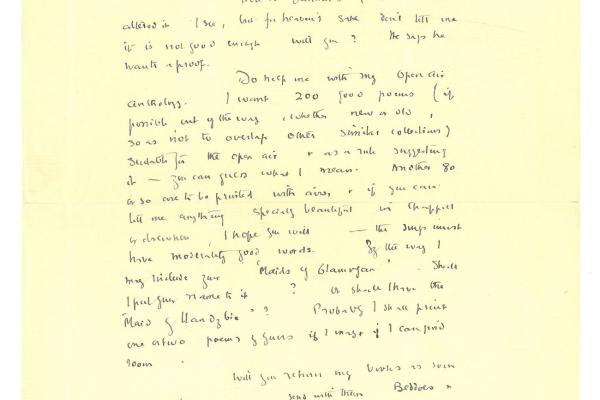 altered it I see, but for heaven's sake don't tell me
it is not good enough will you? He says he
wants a proof.
Do help me with my Open air
anthology. I want 200 good poems (if
possible out of the way, whether new or old,
so as not to overlap other similar collections)
suitable for the open air & as a rule suggesting
it — you can guess what I mean. Another 80
or so are to be printed with airs, & if you can
tell me anything specially beautiful in Chappell
or elsewhere, I hope you will — the songs must
have moderately good words. By the way I
may include your 'Maids of Glamorgan'. Shall
I put your name to it? or shall I have the
'Maid of Llandybie'? Probably I shall print
one or two poems of yours if I may & if I can find
room.
Will you return my books as soon
send with them Beddoes &